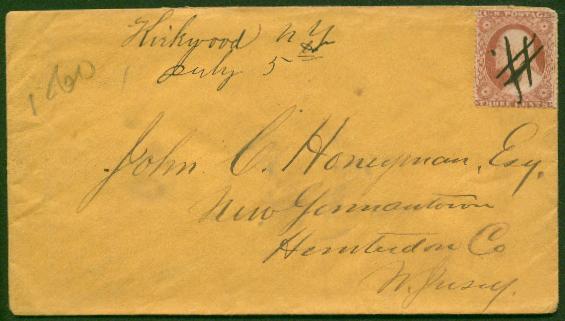 Kirkwood N Y
July 5th
1860
U.S. POSTAGE
THREE CENTS
John C. Honeyman, Esq.
New Germantown
Hunterdon Co
N. Jersey.